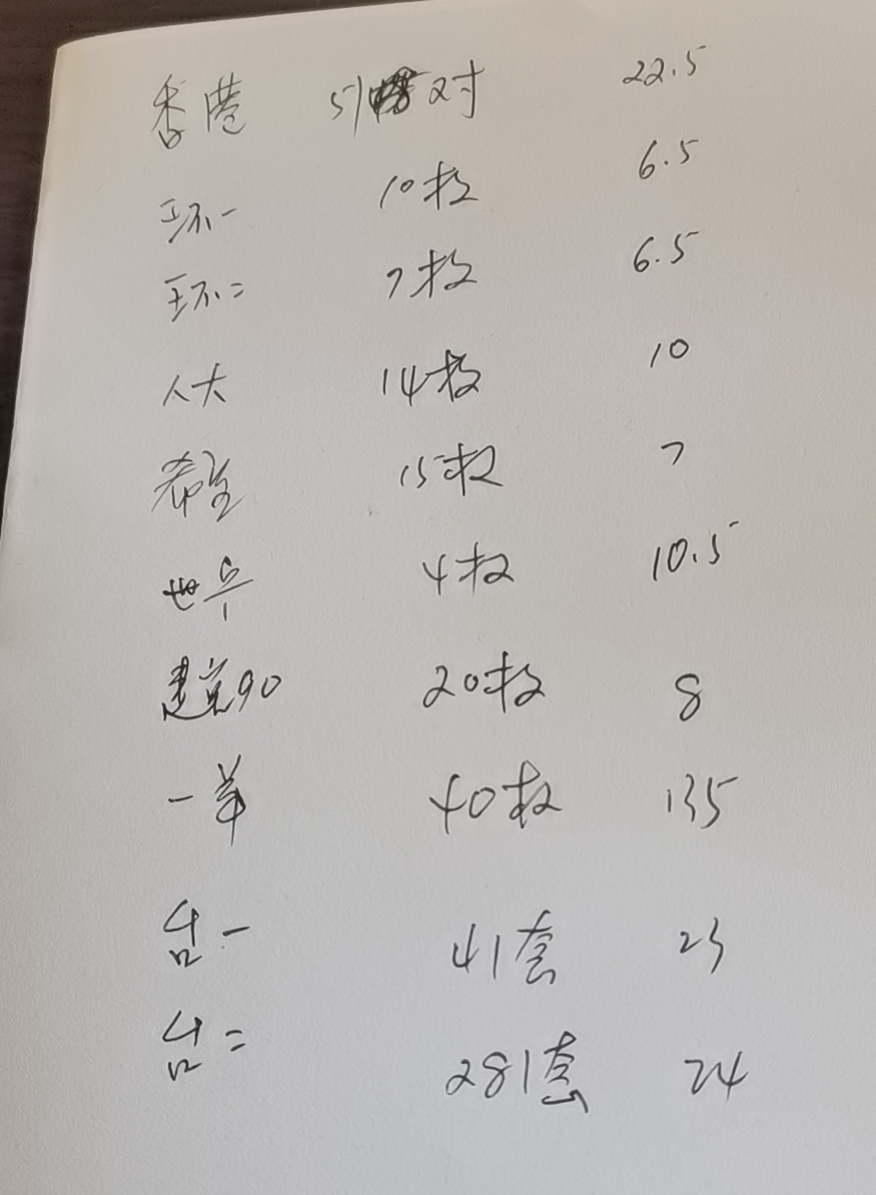 香港 51对 22.5
环一 10枚 6.5
环二 7枚 6.5
人大 14枚 10
希望 15枚 7
世乒 4枚 10.5
建党90 20枚 8
一羊 40枚 135
台一 41套 23
台二 281套 24